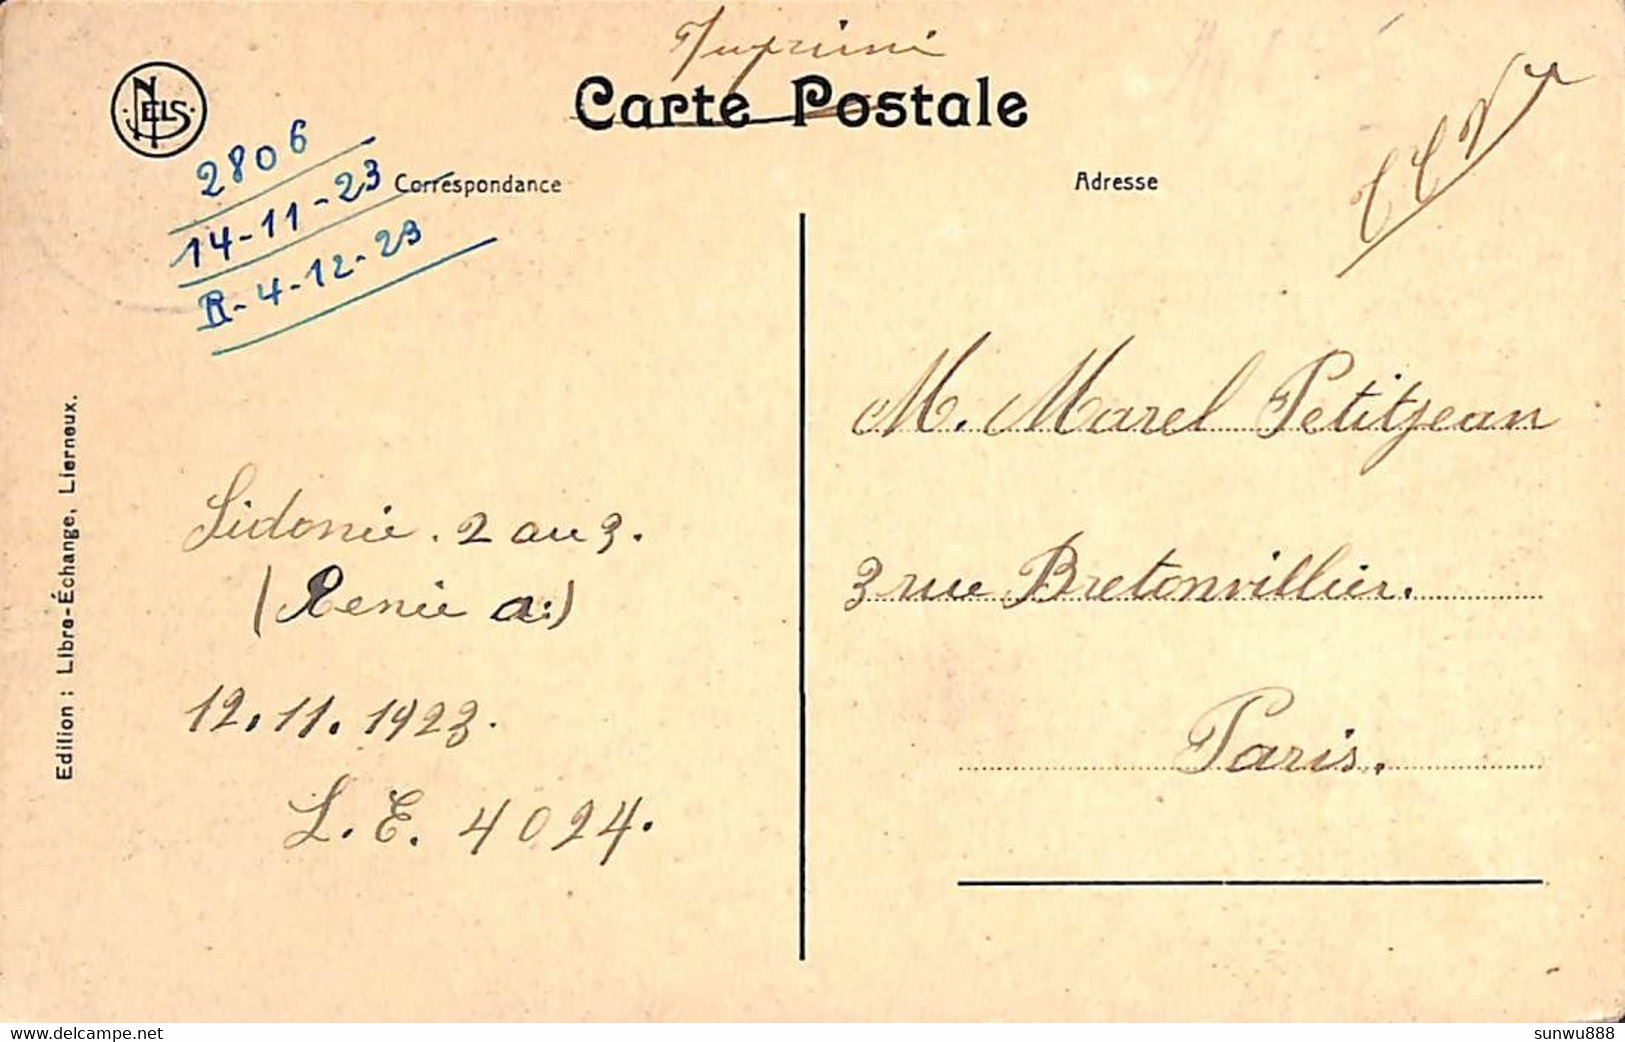 Imprimé
NELS
Carte Postale
TCV
2806
14-11-23
R-4-12-23
Correspondance
Adresse
M. Marcel Petitjean
Sidonie. 2 au 3.
3 rue Bretonvillier.
(Renée a:)
12.11.1923.
Paris.
L.E. 4024.
Edition : Libre-Échange, Lierneux.
delcampe.net
sunwu888